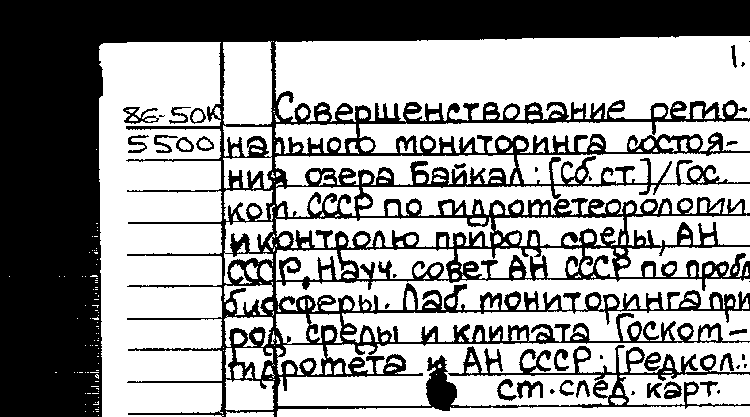 1.
86-50К Совершенствование регио-
5500 нального мониторинга состоя-
ния озера Байкал: [Сб. ст.]/Гос.
ком. СССР по гидрометеорологии
и контролю природ. среды, АН
СССР, Науч. совет АН СССР по пробл
биосферы. Лаб. мониторинга при
род. среды и климата Госком-
гидромета и АН СССР; [Редкол.:
ст. след. карт.